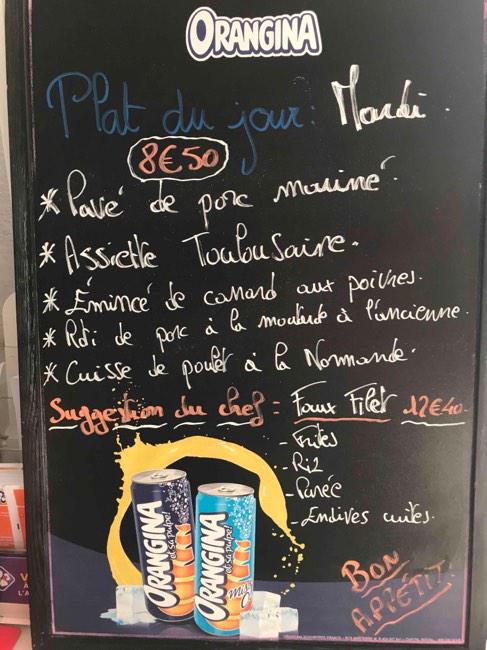 ORANGINA
Plat du jour: Mardi.
8€50
* Pavé de porc mariné.
* Assiette Toulousaine.
* Émincé de canard aux poivres.
* Rôti de porc à la moutarde à l'ancienne.
* Cuisse de poulet à la Normande.
Suggestion du chef = Faux Filet 12€40.
- Frites
- Riz
- Purée
- Endives cuites.
ORANGINA et sa pulpe!
ORANGINA et sa pulpe!
BON
APPÉTIT